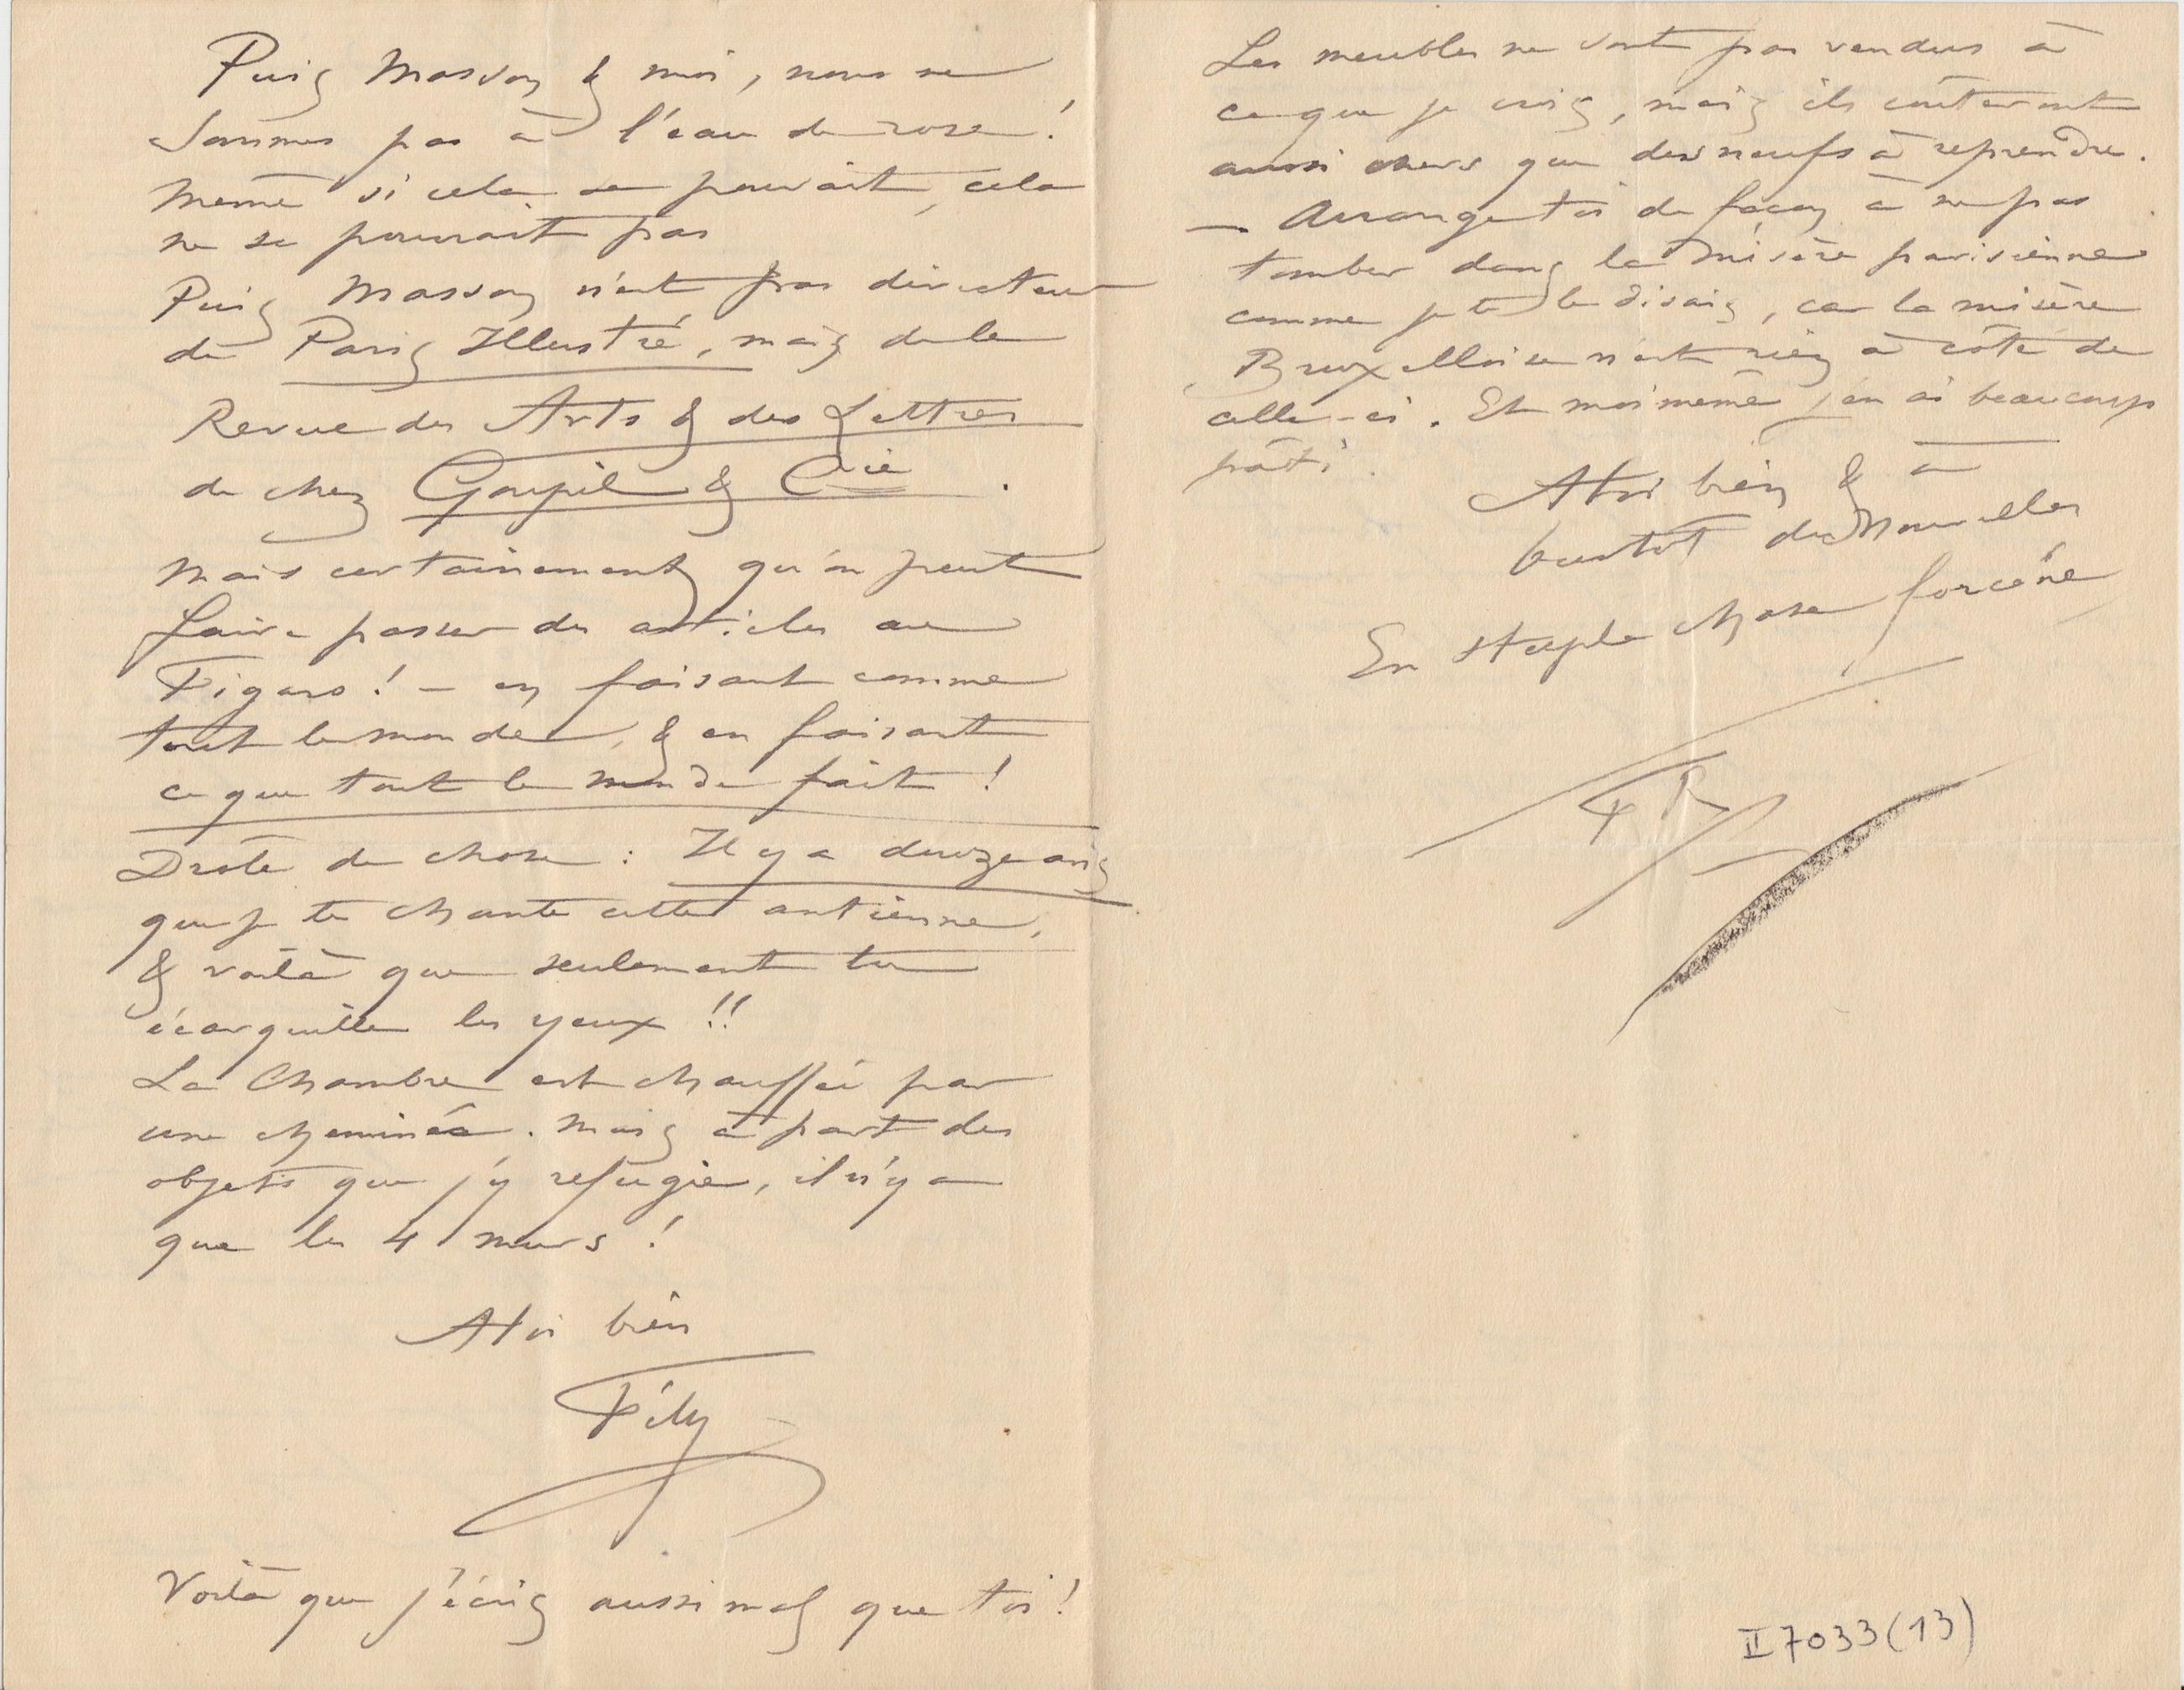 Puis Masson & moi, nous ne
sommes pas à l'eau de rose!
Même si cela se pouvait, cela
ne se pourrait pas
Puis Masson n'est pas directeur
de Paris Illustré, mais de la
Revue des Arts & des Lettres
de chez Goupil & Cie.
Mais certainement qu'on peut
faire passer des articles au
Figaro! — en faisant comme
tout le monde, & en faisant
ce que tout le monde fait!
Drôle de chose : Il y a douze ans
que je te chante cette antienne,
& voilà que seulement tu
écarquilles les yeux!!
La Chambre est chauffée par
une cheminée. Mais à part des
objets que j'y réfugie, il n'y a
que les 4 murs!
A toi bien
Fély
Voilà que j'écris aussi mal que toi!
Les meubles ne sont pas vendus à
ce que je crois, mais ils coûteront
aussi chers que des neufs à reprendre.
— Arrange toi de façon à ne pas
tomber dans la misère parisienne
comme je te le disais, car la misère
Bruxelloise n'est rien à côté de
celle-ci. Et moi même j'en ai beaucoup
pâti.
A toi bien & à
bientôt des nouvelles
En chose forcéné
FR
II 7033 (13)